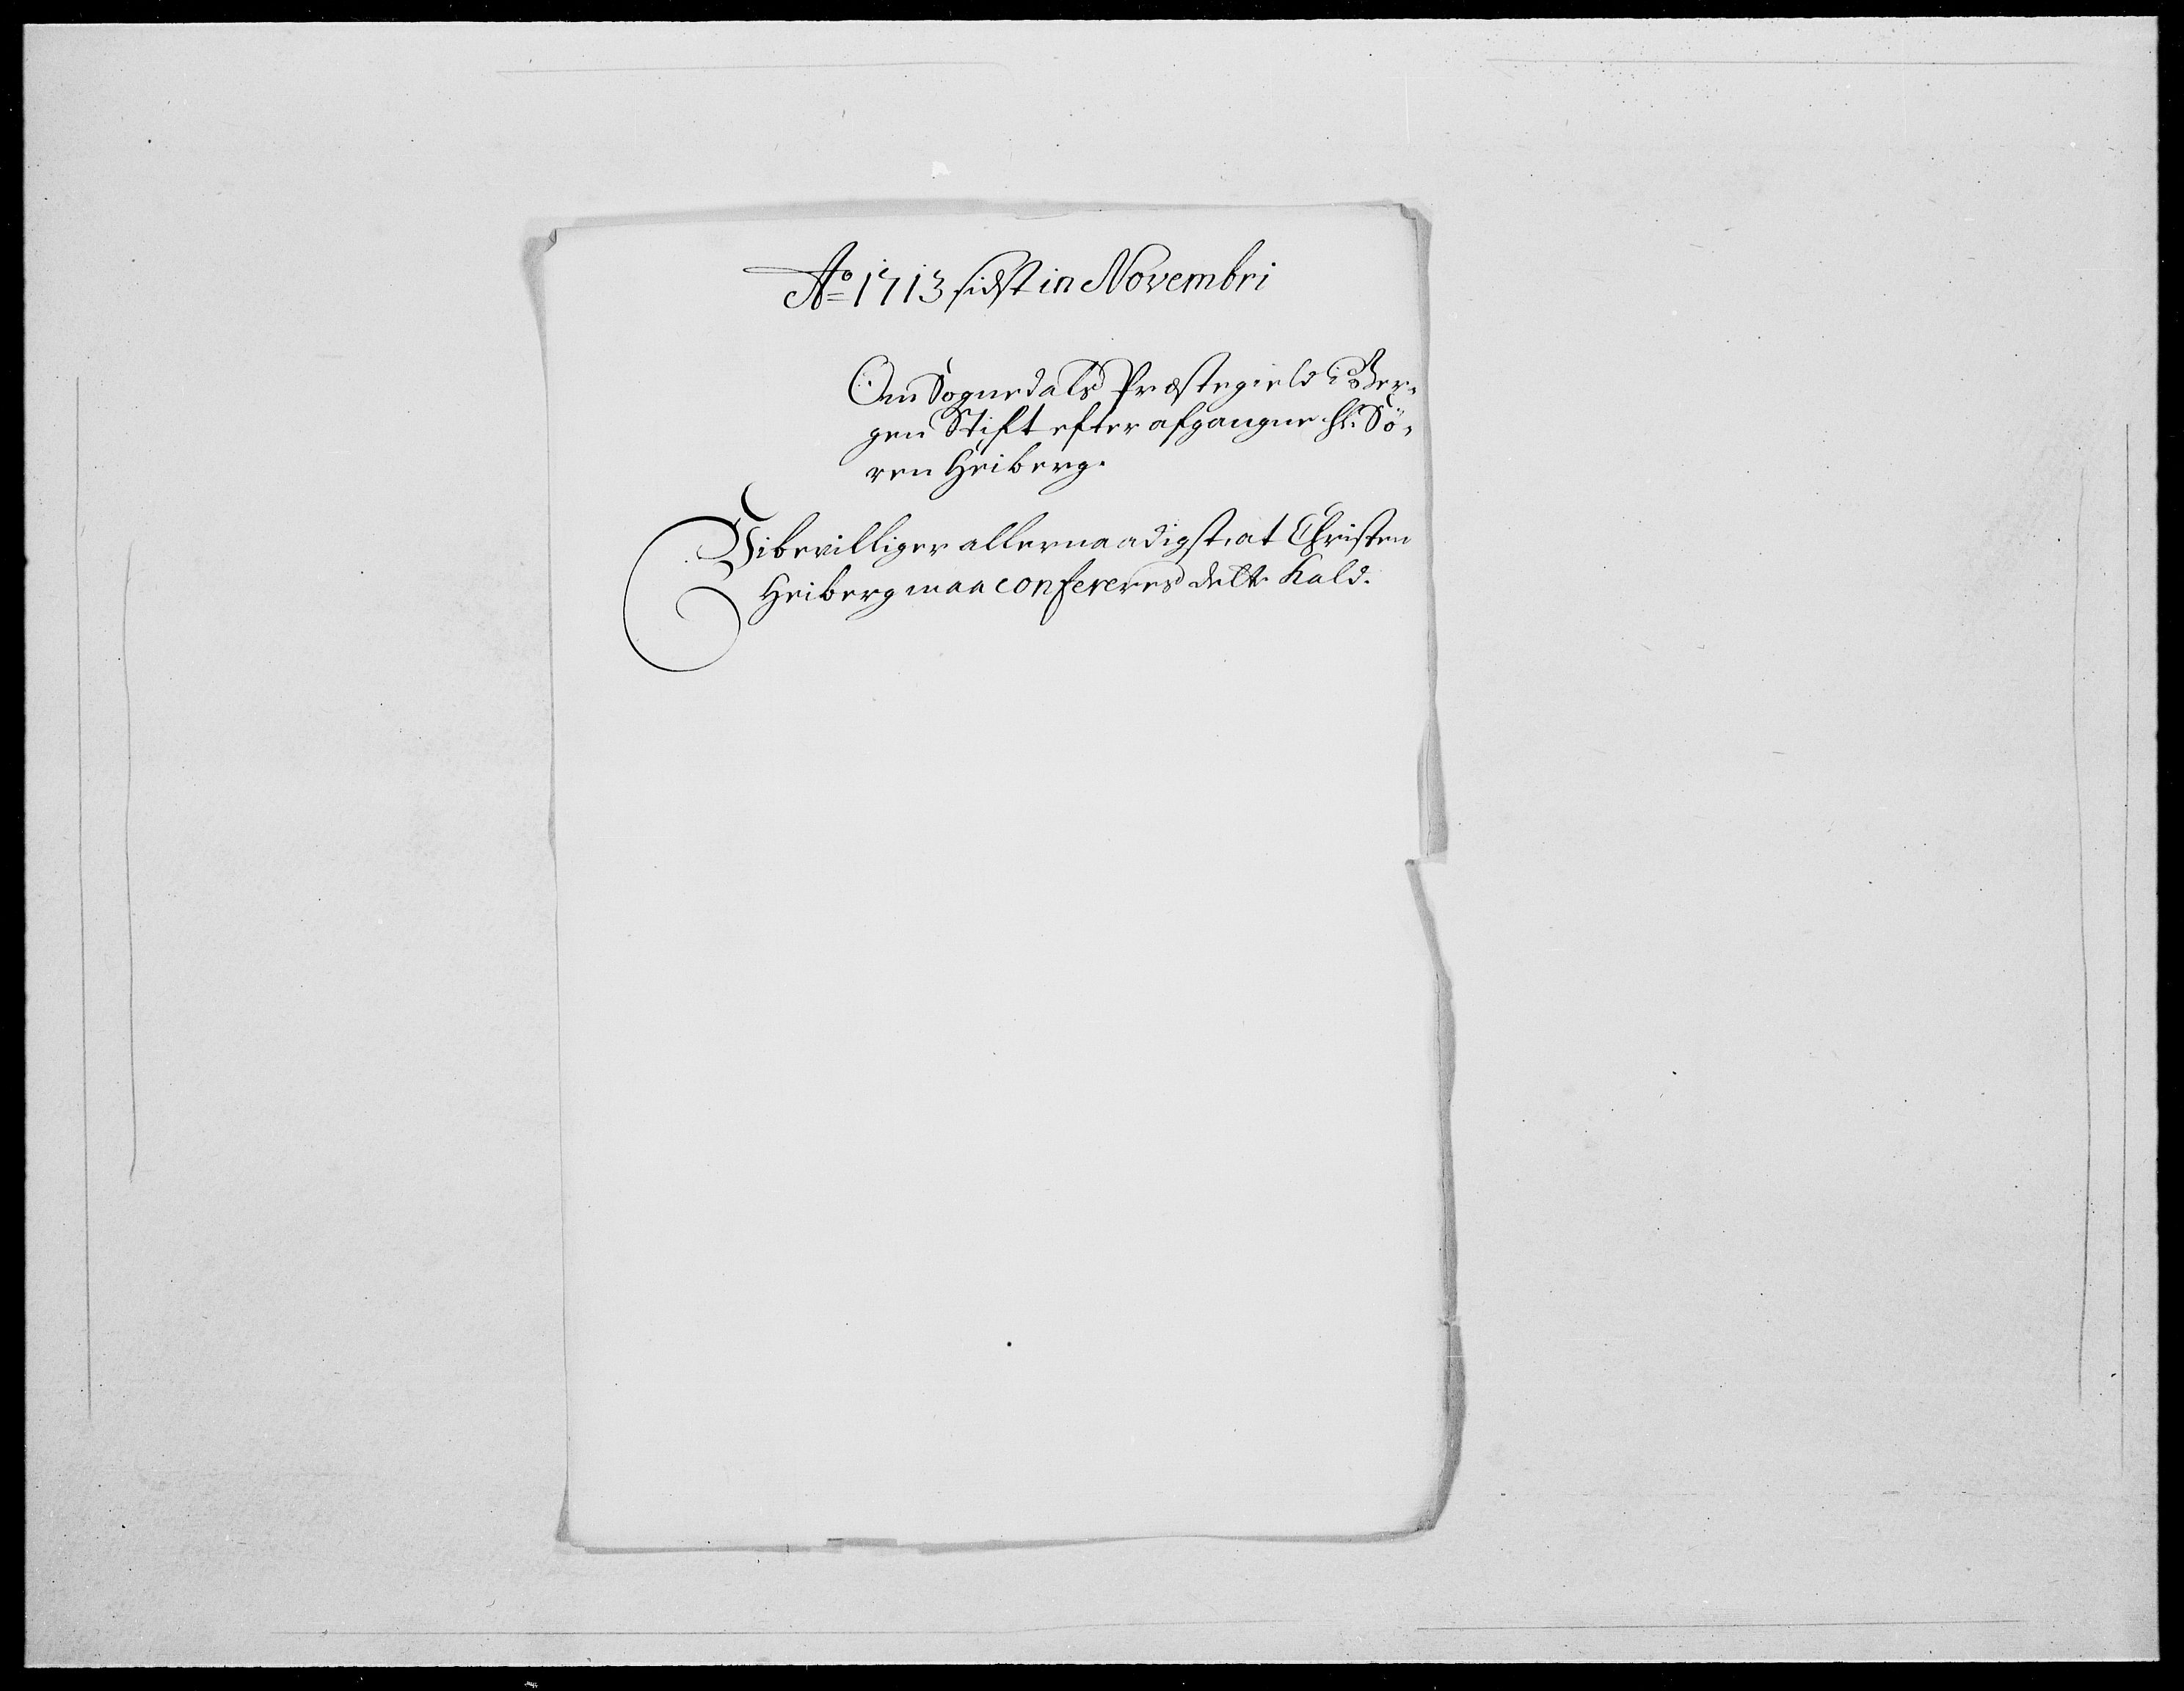 Ao 1713 sidst in Novembri
Om Sognedals Præstegield i Ber-
gen Stift efter afgangne Hr. Sö-
ren Heiberg.
Vi bevilliger allernaadigst, at Christen
Heiberg maa confereres dette Kald.